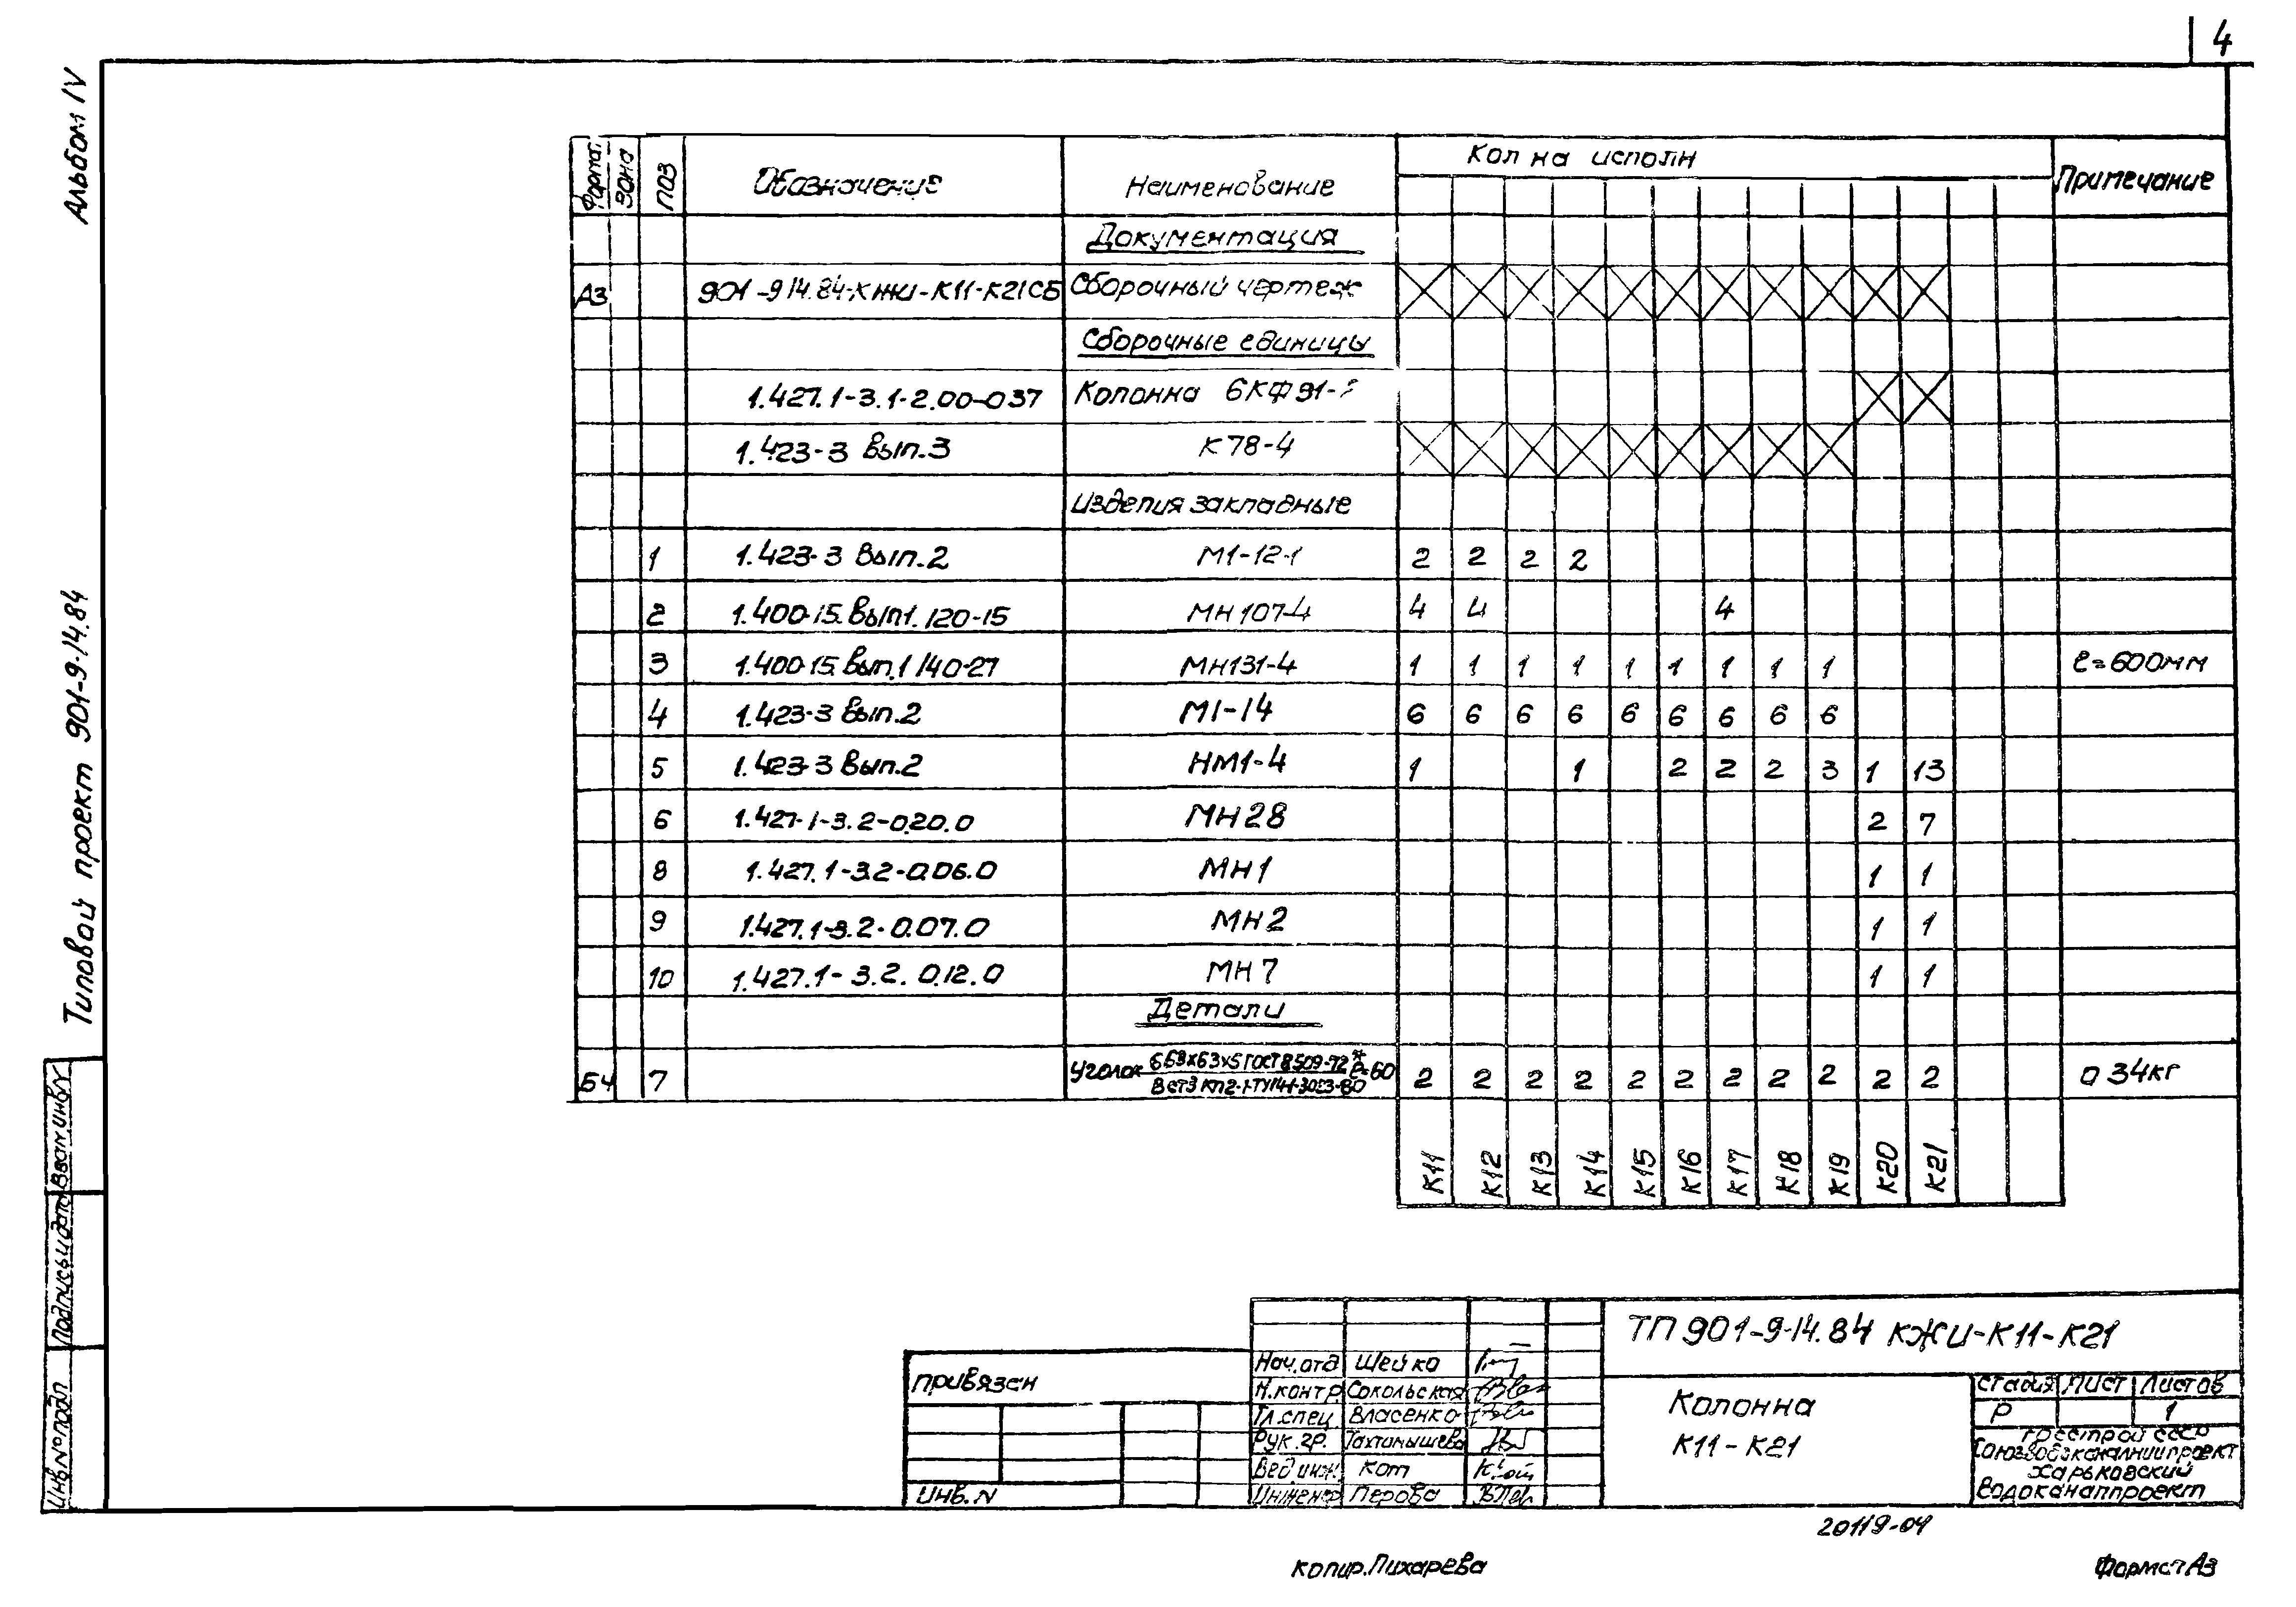 4
Альбом IV
Типовой проект 901-9-14.84
Формат Зона Поз Обозначение Наименование Кол на исполн Примечание
Документация
А3 901-9 14.84-КЖИ-К11-К21СБ Сборочный чертеж
Сборочные единицы
1.427.1-3.1-2.00-037 Колонна 6КФ91-
1.423-3 Вып.3 К78-4
Изделия закладные
1 1.423-3 Вып.2 М1-12-1 2 2 2 2
2 1.400-15. Вып1. 120-15 МН107-4 4 4 4
3 1.400-15. Вып.1 140-27 МН131-4 1 1 1 1 1 1 1 1 1 ℓ=600мм
4 1.423-3 Вып.2 М1-14 6 6 6 6 6 6 6 6 6
5 1.423-3 Вып.2 НМ1-4 1 1 2 2 2 3 1 13
6 1.427.1-3.2-0.20.0 МН28 2 7
8 1.427.1-3.2-0.06.0 МН1 1 1
9 1.427.1-3.2-0.07.0 МН2 1 1
10 1.427.1-3.2.0.12.0 МН7 1 1
Детали
БЧ 7 Уголок Б63х63х5 ГОСТ 8509-72* ℓ=60 2 2 2 2 2 2 2 2 2 2 2 0 34кг
ВСт3 КП2-1-ТУ14-1-3023-80
К11 К12 К13 К14 К15 К16 К17 К18 К19 К20 К21
Инв№подл Подпись и дата Взам инв№
привязан
Инв.N
Нач.отд Шейко
Н.контр. Сокольская
Гл.спец Власенко
Рук.гр. Тахтамышева
Вед инж. Кот
Инженер Перова
ТП 901-9-14.84 КЖИ-К11-К21
Колонна
К11-К21
Стадия Лист Листов
Р 1
Госстрой СССР
Союзводоканалниипроект
Харьковский
Водоканалпроект
20119-04
Копир. Пихарева
Формат А3